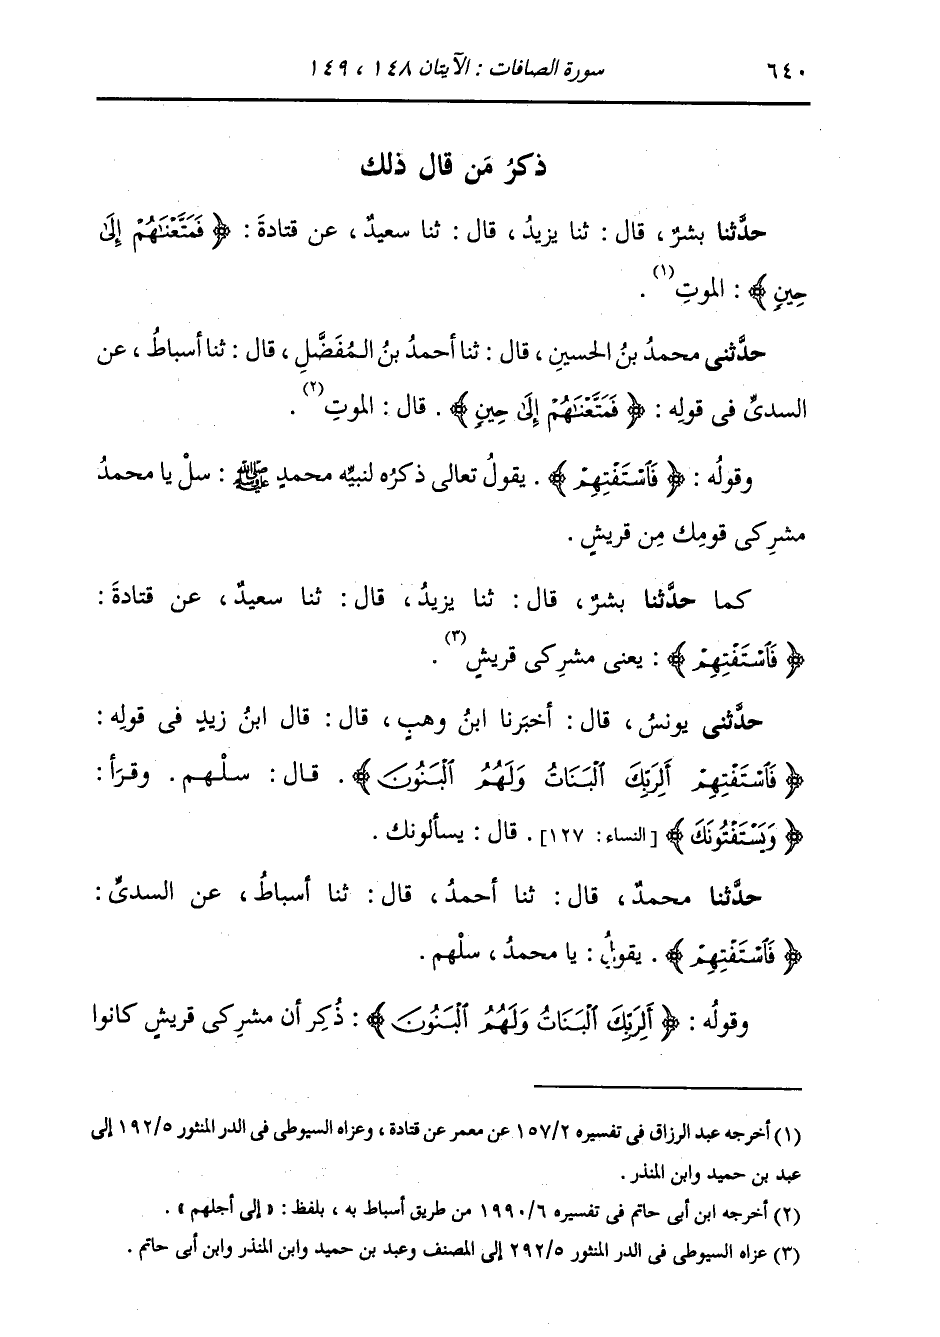 ٦٤٠ سورة الصافات : الآيتان ١٤٨ ، ١٤٩
ذكرُ مَن قال ذلك
حدَّثنا بشرٌ ، قال : ثنا يزيدُ ، قال : ثنا سعيدٌ ، عن قتادةَ : ﴿ فَمَتَّعْنَٰهُمْ إِلَىٰ
حِينٍ ﴾ : الموتِ(١) .
حدَّثنى محمدُ بنُ الحسينِ ، قال : ثنا أحمدُ بنُ المُفَضَّلِ ، قال : ثنا أسباطُ ، عن
السدىِّ فى قولِه : ﴿ فَمَتَّعْنَٰهُمْ إِلَىٰ حِينٍ ﴾ . قال : الموتِ(٢) .
وقولُه : ﴿ فَٱسْتَفْتِهِمْ ﴾ . يقولُ تعالى ذكرُه لنبيِّه محمدٍ ﷺ : سلْ يا محمدُ
مشرِكى قومِك مِن قريشٍ .
كما حدَّثنا بشرٌ ، قال : ثنا يزيدُ ، قال : ثنا سعيدٌ ، عن قتادةَ :
﴿ فَٱسْتَفْتِهِمْ ﴾ : يعنى مشرِكى قريشٍ(٣) .
حدَّثنى يونسُ ، قال : أخبَرنا ابنُ وهبٍ ، قال : قال ابنُ زيدٍ فى قولِه :
﴿ فَٱسْتَفْتِهِمْ أَلِرَبِّكَ ٱلْبَنَاتُ وَلَهُمُ ٱلْبَنُونَ ﴾ . قال : سلْهم . وقرَأ :
﴿ وَيَسْتَفْتُونَكَ ﴾ [النساء : ١٢٧] . قال : يسألونك .
حدَّثنا محمدٌ ، قال : ثنا أحمدُ ، قال : ثنا أسباطُ ، عن السدىِّ :
﴿ فَٱسْتَفْتِهِمْ ﴾ . يقولُ : يا محمدُ ، سلْهم .
وقولُه : ﴿ أَلِرَبِّكَ ٱلْبَنَاتُ وَلَهُمُ ٱلْبَنُونَ ﴾ : ذُكِر أن مشرِكى قريشٍ كانوا
(١) أخرجه عبد الرزاق فى تفسيره ١٥٧/٢ عن معمر عن قتادة ، وعزاه السيوطى فى الدر المنثور ١٩٢/٥ إلى
عبد بن حميد وابن المنذر .
(٢) أخرجه ابن أبى حاتم فى تفسيره ١٩٩٠/٦ من طريق أسباط به ، بلفظ : « إلى أجلهم » .
(٣) عزاه السيوطى فى الدر المنثور ٢٩٢/٥ إلى المصنف وعبد بن حميد وابن المنذر وابن أبى حاتم .